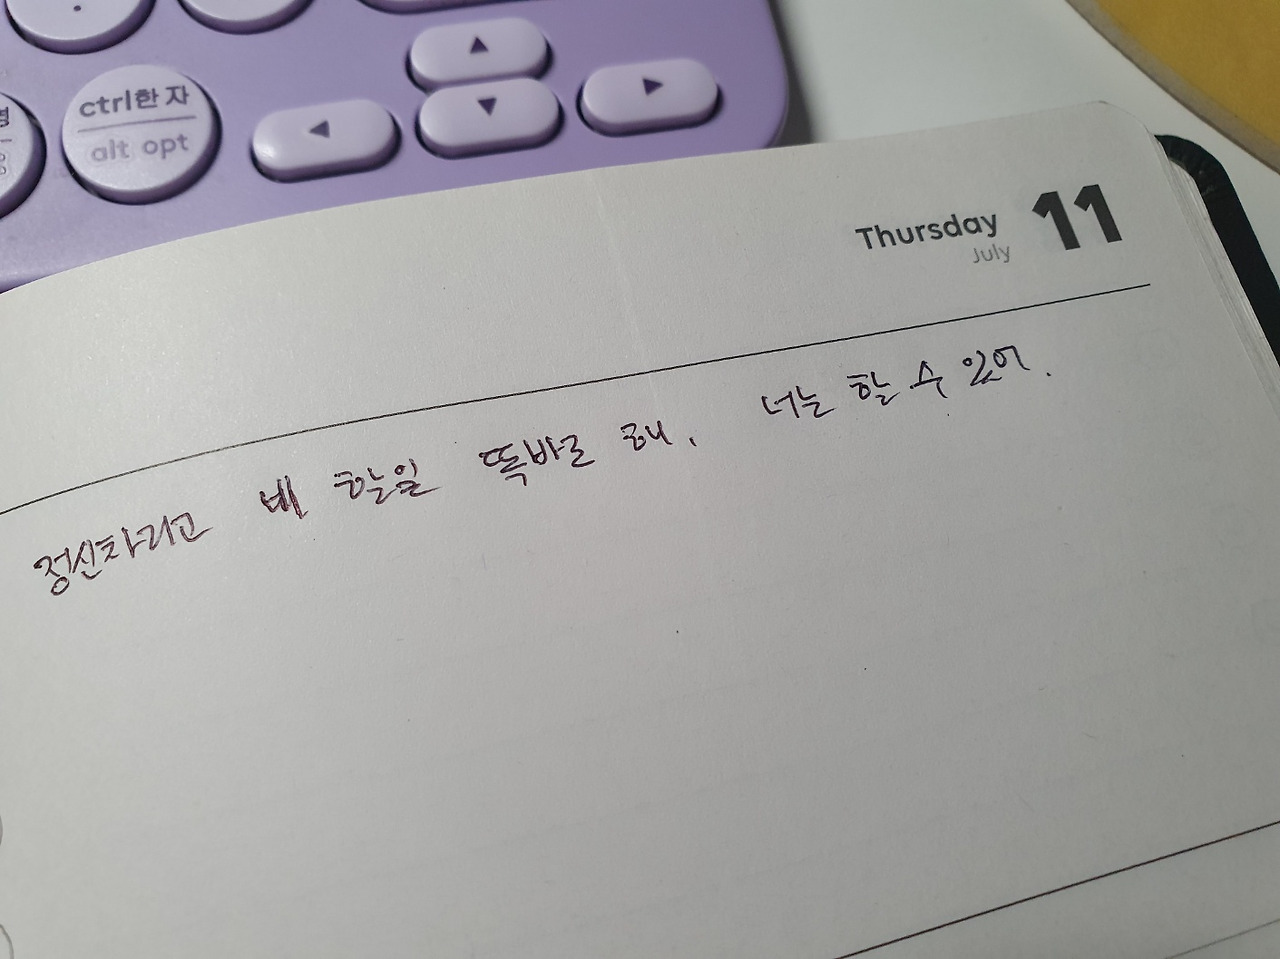 ctrl한자
alt opt
Thursday 11
July
정신차리고 네 할일 똑바로 해. 너는 할 수 있어.